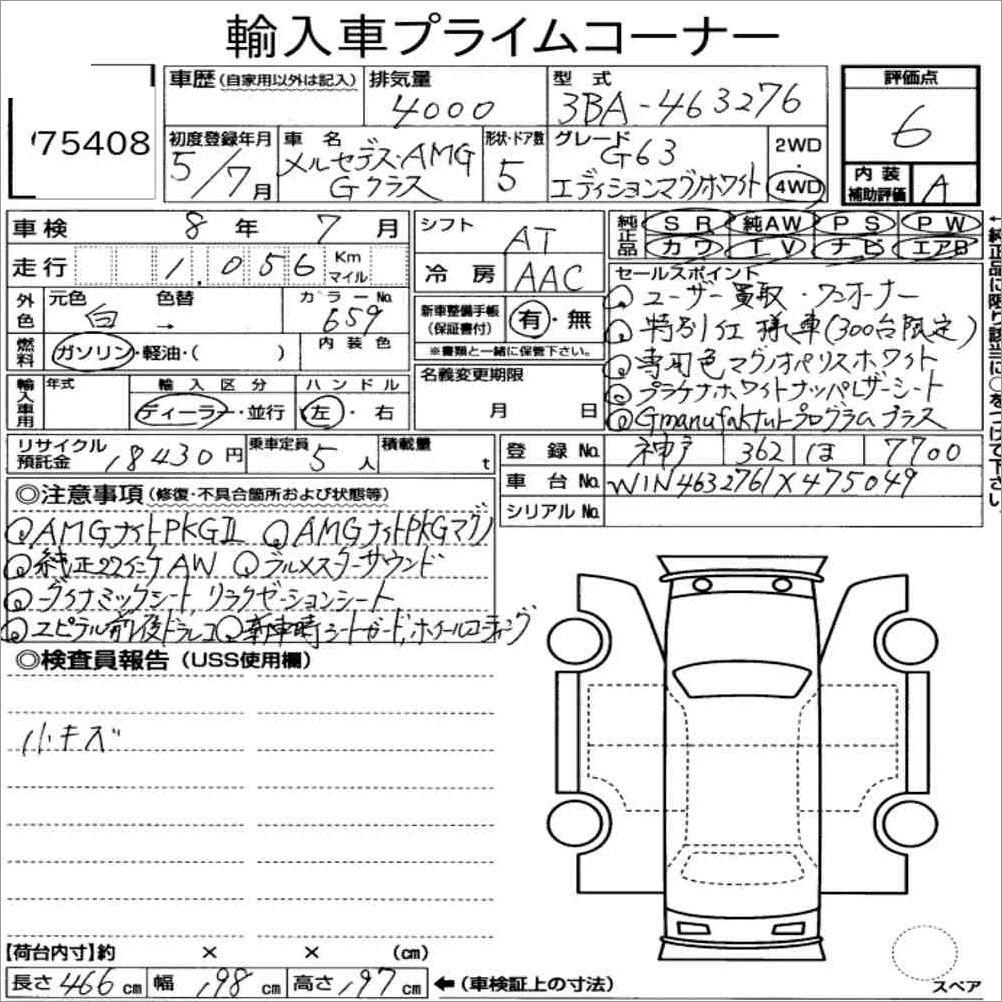 輸入車プライムコーナー
75408
車歴(自家用以外は記入) 排気量 4000 型式 3BA-463276
評価点 6
初度登録年月 5/7月 車名 メルセデス・AMG Gクラス 形状・ドア数 5 グレード G63 エディションマグノホワイト 2WD・4WD
内装補助評価 A
車検 8年 7月
シフト AT
純正品 SR 純AW PS PW
カワ TV ナビ エアB
走行 1,056 Km マイル
冷房 AAC
←純正品に限り該当に○をつけて下さい。
外色 元色 白 色替 → カラーNo. 659
内装色
新車整備手帳(保証書付) 有・無
※書類と一緒に保管下さい。
燃料 ガソリン・軽油・( )
セールスポイント
◎ユーザー買取・ワンオーナー
◎特別仕様車(300台限定)
◎専用色マグノオパリスホワイト
◎プラチナホワイトナッパレザーシート
◎Gmanufakturプログラムプラス
名義変更期限 月 日
輸入車用 年式 輸入区分 ディーラー・並行 ハンドル 左・右
リサイクル預託金 18430円 乗車定員 5人 積載量 t
登録No. 神戸 362 ほ 7700
車台No. W1N4632761X475049
シリアルNo.
◎注意事項(修復・不具合箇所および状態等)
◎AMGナイトPKGII ◎AMGナイトPKGマグノ
◎純正22インチAW ◎ブルメスターサウンド
◎ダイナミックシート,リラクゼーションシート
◎ユピテル前後ドラレコ◎新車時シートガード,ホイールコーティング
◎検査員報告(USS使用欄)
小キズ
【荷台内寸】約 × × (cm)
長さ 466cm 幅 198cm 高さ 197cm ←(車検証上の寸法)
スペア